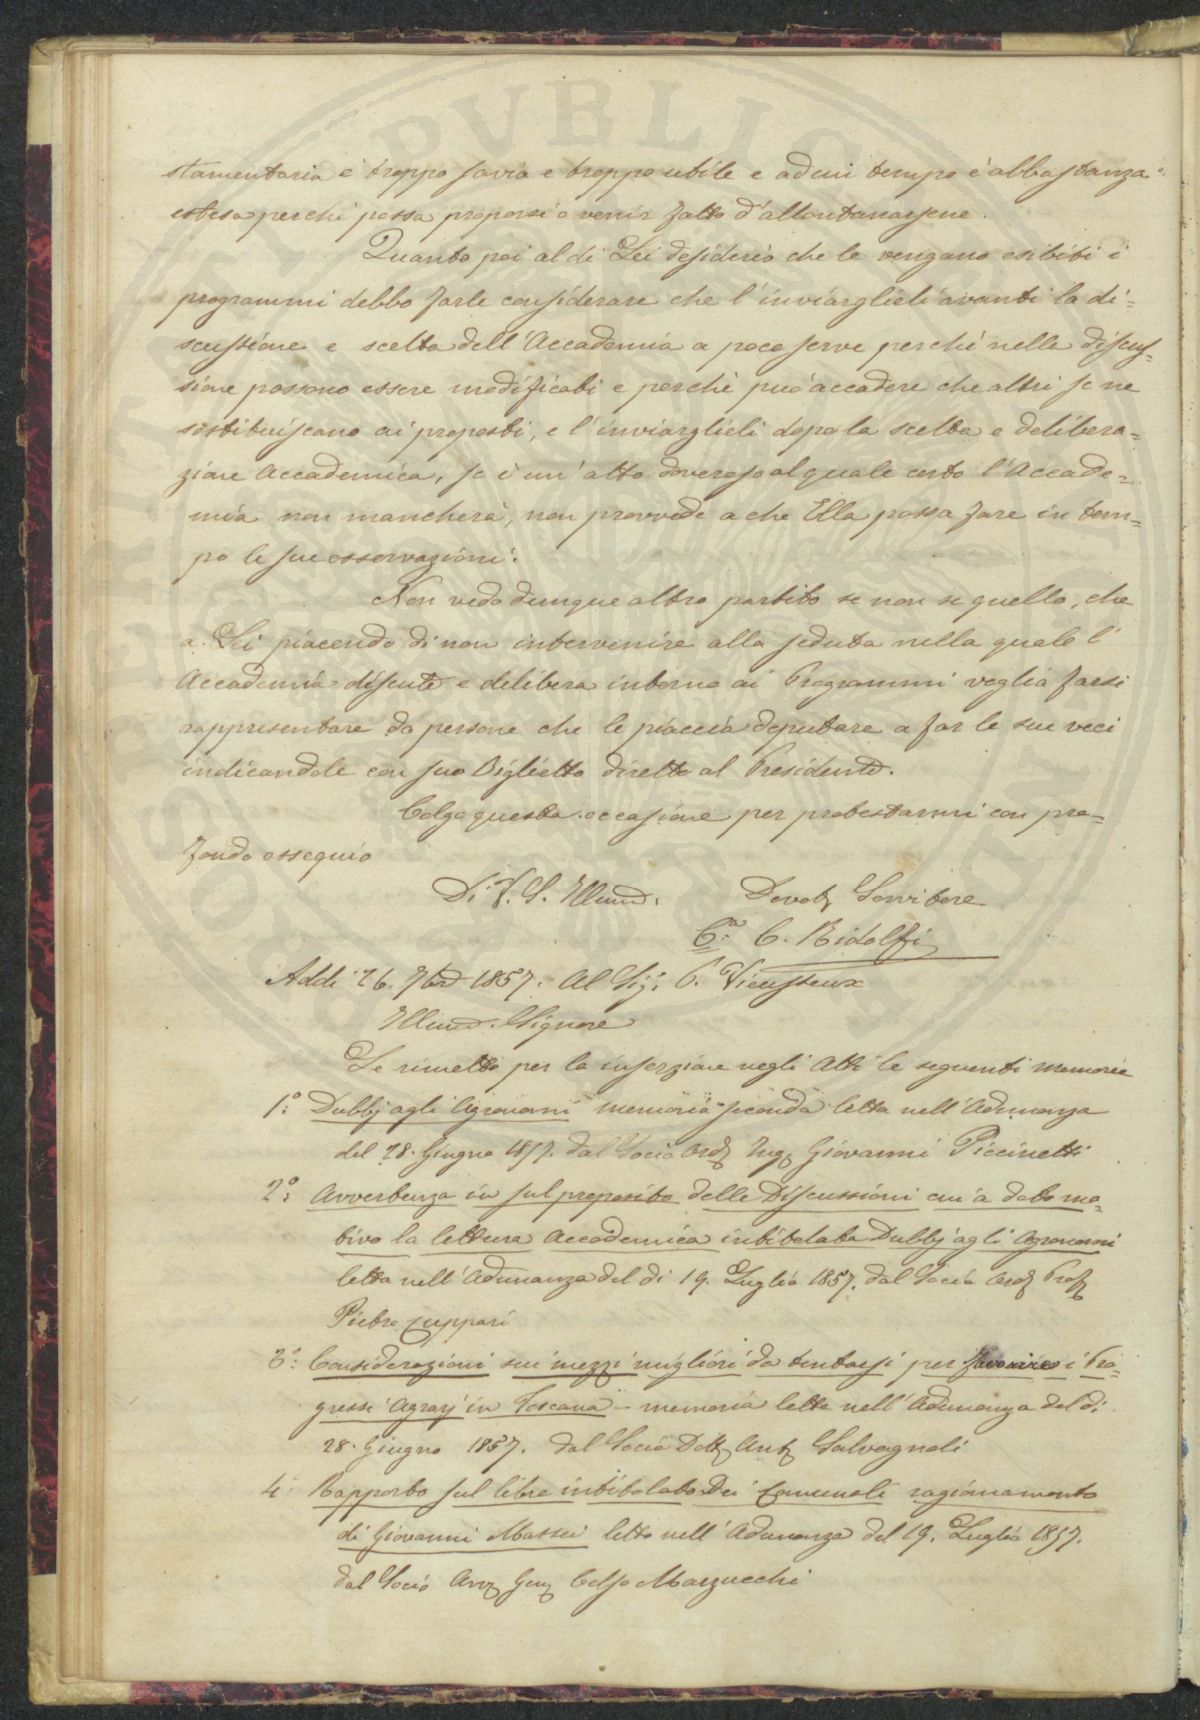 stamentaria è troppo savia e troppo utile e ad un tempo è abbastanza
estesa perchè possa proporsi o venir fatto d'allontanarsene.
Quanto poi al di Lei desiderio che le vengano esibiti i
programmi debbo farle considerare che l'inviarglieli avanti la di=
scussione e scelta dell'Accademia a poco serve perchè nella discus=
sione possono essere modificati e perchè può accadere che altri se ne
sostituiscano ai proposti, e l'inviarglieli dopo la scelta e delibera=
zione Accademica, se è un'atto doveroso al quale certo l'Accade=
mia non mancherà, non provvede a che Ella possa fare in tem=
po le sue osservazioni.
Non vedo dunque altro partito se non se quello, che
a Lei piacendo di non intervenire alla seduta nella quale l'
Accademia discute e delibera intorno ai Programmi voglia farsi
rappresentare da persone che le piaccia deputare a far le sue veci
indicandole con suo Biglietto diretto al Presidente.
Colgo questa occasione per protestarmi con pro=
fondo ossequio
Di V. S. Illma.
Devot. Servitore
C. Ridolfi
Addi 26. 7bre 1857. Al Sig. P. Vieusseux
Illmo. Signore
Le rimetto per la inserzione negli Atti le seguenti memorie
1.° Dubbj agli Agronomi memoria seconda letta nell'Adunanza
del 28. Giugno 1857. dal Socio Ord. Ing. Giovanni Piccinetti
2.° Avvertenza in sul proposito delle Discussioni cui à dato mo=
tivo la lettura Accademica intitolata Dubbj agli Agronomi
letta nell'Adunanza del di 19. Luglio 1857. dal Socio Ord. Prof.
Pietro Cuppari
3.° Considerazioni sui mezzi migliori da tentarsi per favorire i Pro=
gressi Agrarj in Toscana - memoria letta nell'Adunanza del di
28. Giugno 1857. dal Socio Dott. Ant. Salvagnoli
4. Rapporto sul libro intitolato Dei Comunali ragionamento
di Giovanni Massei letto nell'Adunanza del 19. Luglio 1857.
dal Socio Avv. Gen. Celso Marzucchi